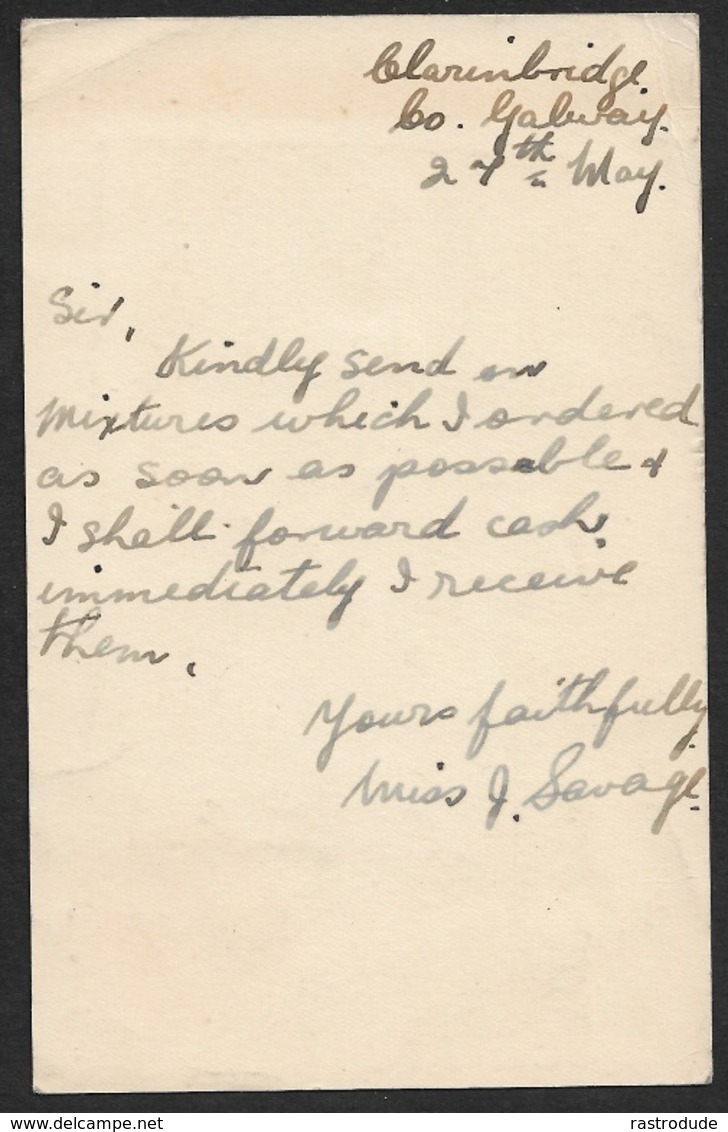 Clarinbridge
Co. Galway.
27th May.
Sir,
Kindly send on
Mixtures which I ordered
as soon as possable &
I shall forward cash
immediately I receive
them.
Yours faithfully
Miss J. Savage
www.delcampe.net
rastrodude